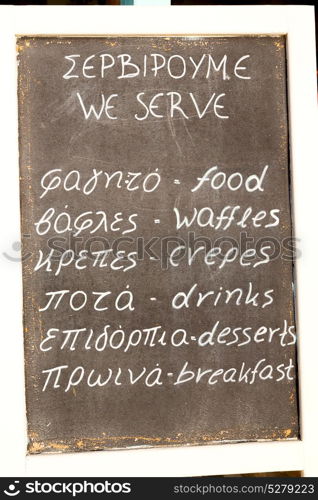 ΣΕΡΒΙΡΟΥΜΕ
WE SERVE
φαγητό - food
βάφλες - waffles
κρέπες - crepes
ποτά - drinks
επιδόρπια - desserts
πρωινά - breakfast
stackphotos
©
www.stackphotos.com
#5279223